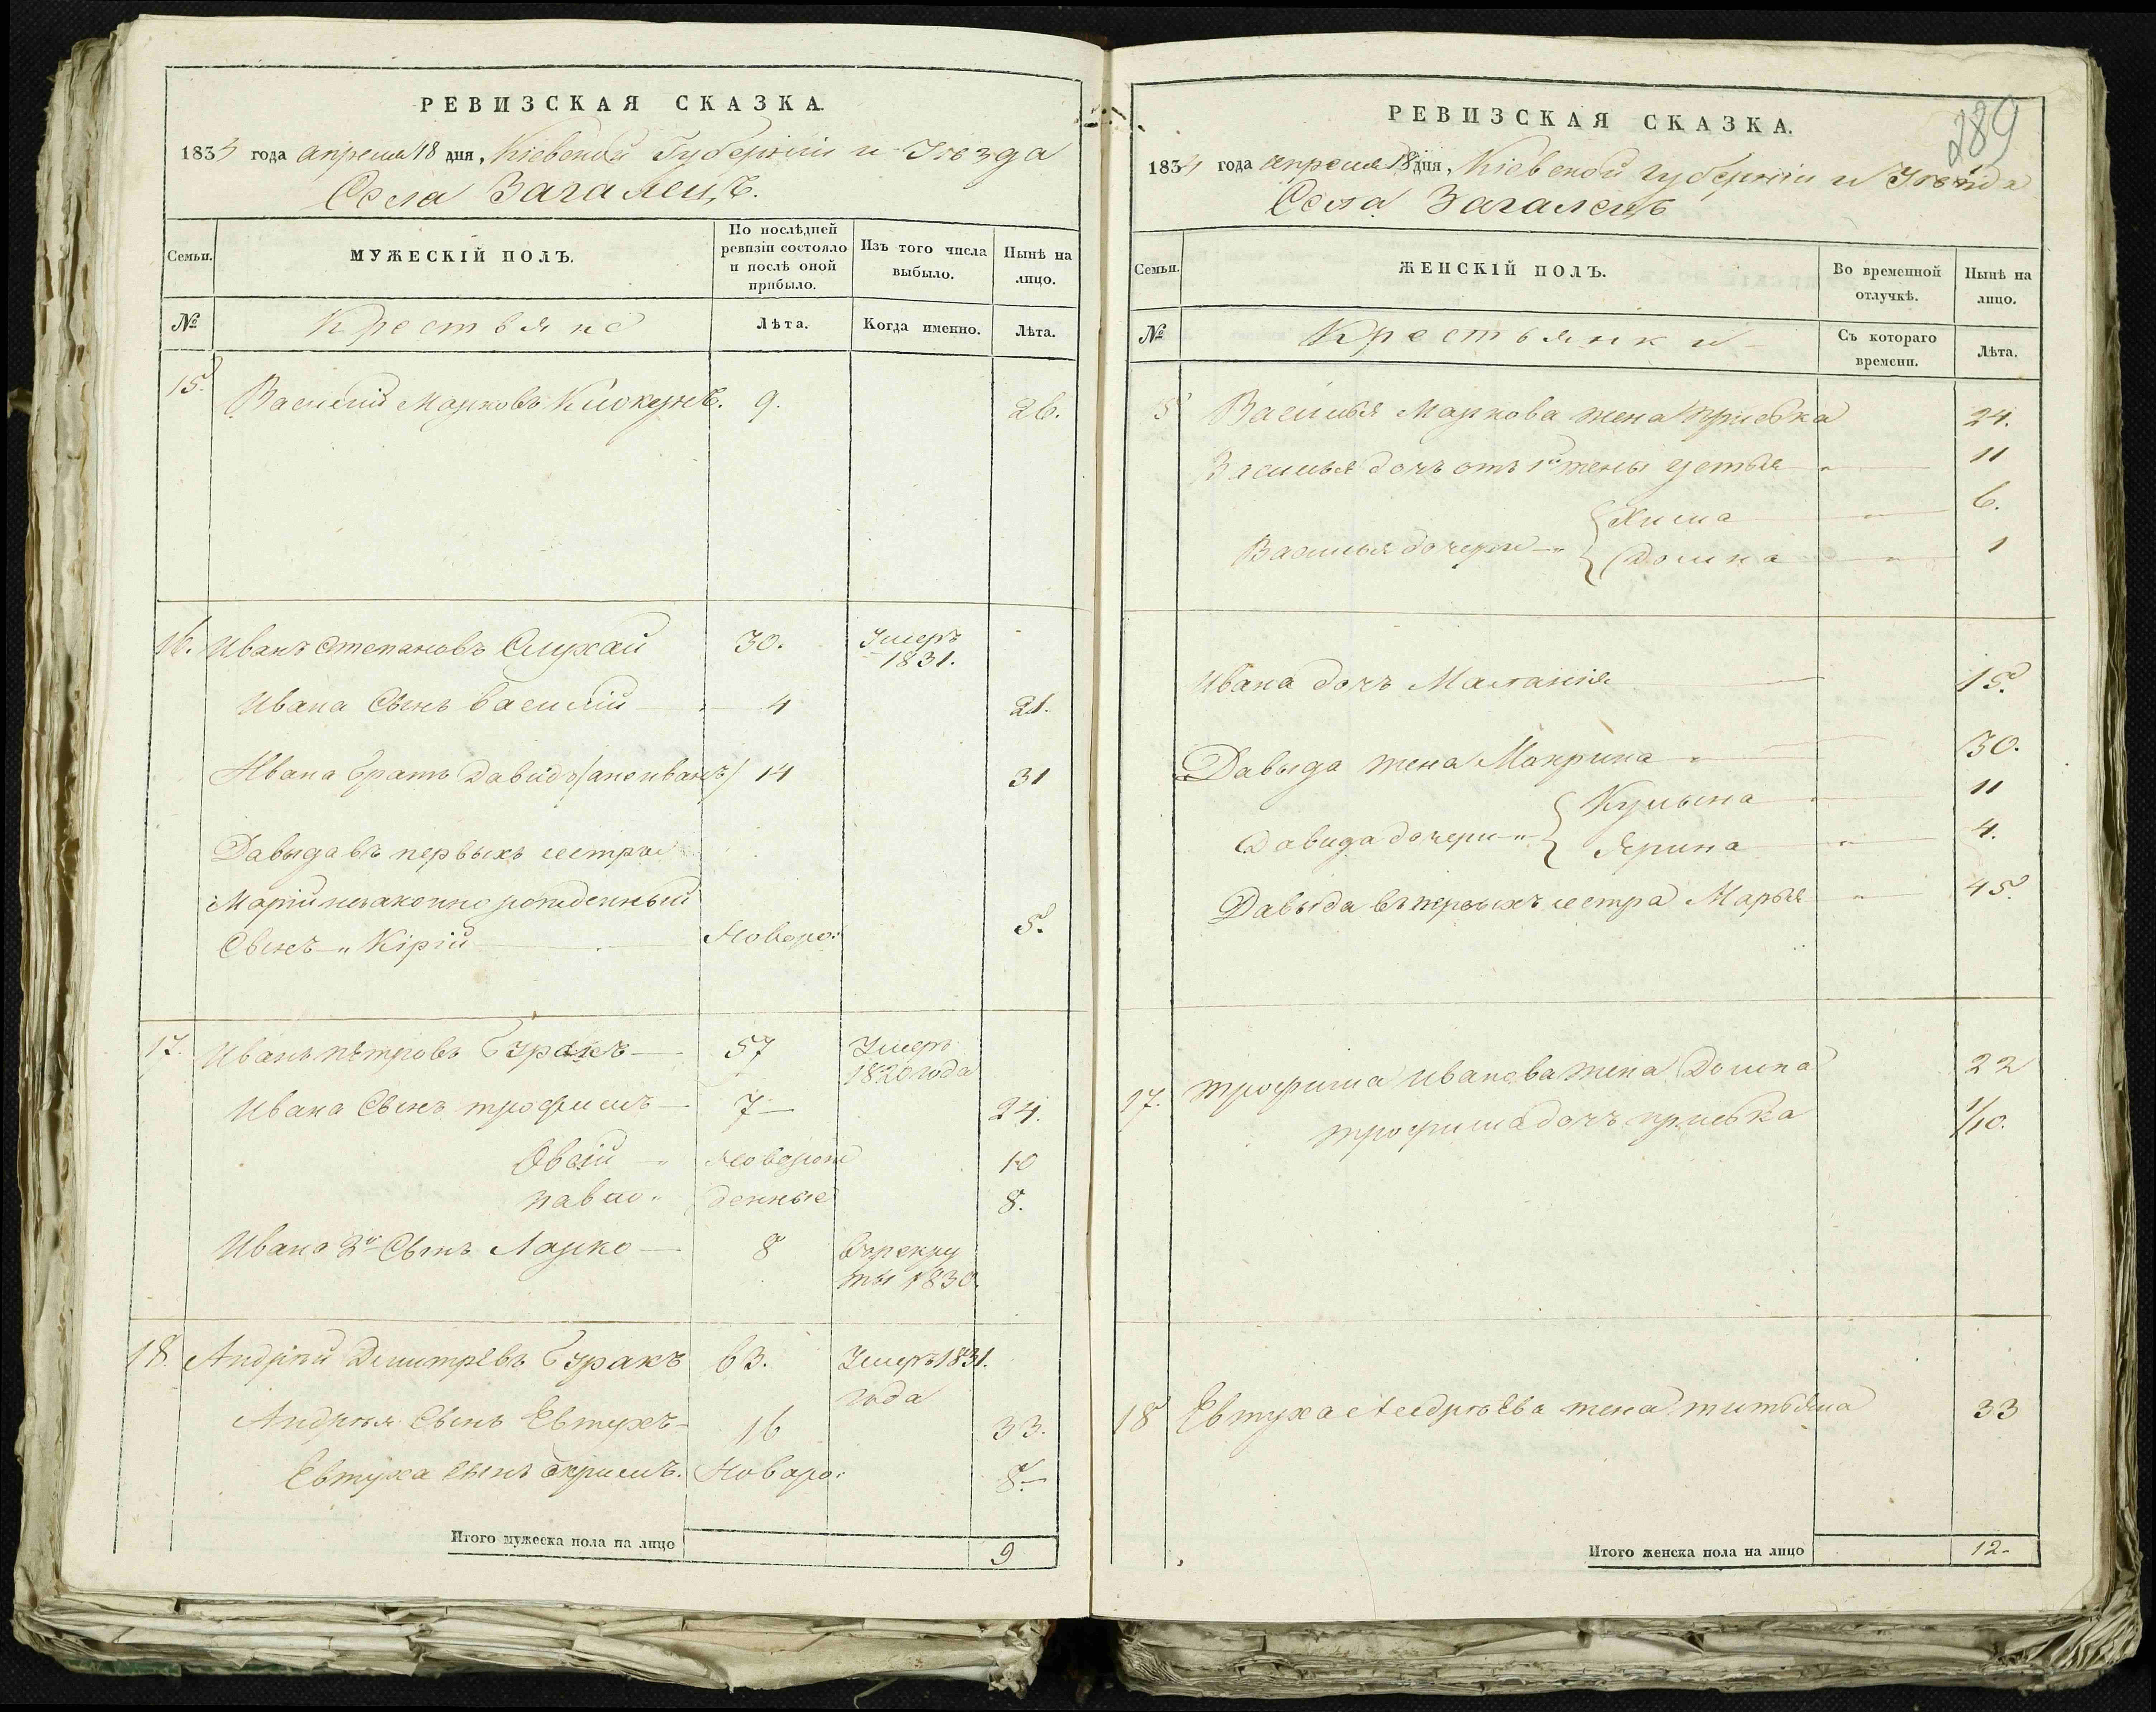 РЕВИЗСКАЯ СКАЗКА.
1834 года апреля 18 дня, Кіевской Губерніи и Уезда
Села Загалецъ.
Семьи.
МУЖЕСКІЙ ПОЛЪ.
По послѣдней ревизіи состояло и послѣ оной прибыло.
Изъ того числа выбыло.
Нынѣ на лицо.
№
Крестьяне
Лѣта.
Когда именно.
Лѣта.
15. Василий Марковъ 9. 26.
16. Иванъ Степановъ Слухай 30. Умеръ 1831.
Ивана Сынъ Василий 4 21.
Ивана братъ Давидъ 14 31
Давыда въ первыхъ сестры
Марии незаконно рожденный
Сынъ „ Кірій Новоро: 5.
17. Иванъ Петровъ Буракъ 57 Умеръ 1820 года
Ивана Сынъ трофимъ 7 24.
Овсій „ Новорож 10
павло „ денные 8.
Ивана 2й Сынъ Марко 8 врекру ты 1830.
18. Андрій Дмитревъ Буракъ 63. Умеръ 1831. года
Андрея Сынъ Евтухъ 16 33.
Евтуха сынъ Новоро: 8.
Итого мужеска пола на лицо 9
289
РЕВИЗСКАЯ СКАЗКА.
1834 года апреля 18 дня, Кіевской Губерніи и Уезда
Села Загалецъ
Семьи.
ЖЕНСКІЙ ПОЛЪ.
Во временной отлучкѣ.
Нынѣ на лицо.
№
Крестьянки
Съ котораго времени.
Лѣта.
15 Василья Маркова жена приська 24.
Василья дочь отъ 1й жены устья „ 11
Химa „ 6.
Василья дочери „
Домна „ 1
Ивана дочъ Маланія 15.
Давыда жена Макрина „ 30.
Кулына „ 11
Давида дочери „
Ярина „ 4.
Давыда въ первыхъ сестра Марья „ 45.
17. трофима Иванова жена Домна 22
трофима дочъ приська 1/10.
18 Евтуха Андрѣева жена титьяна 33
Итого женска пола на лицо 12.